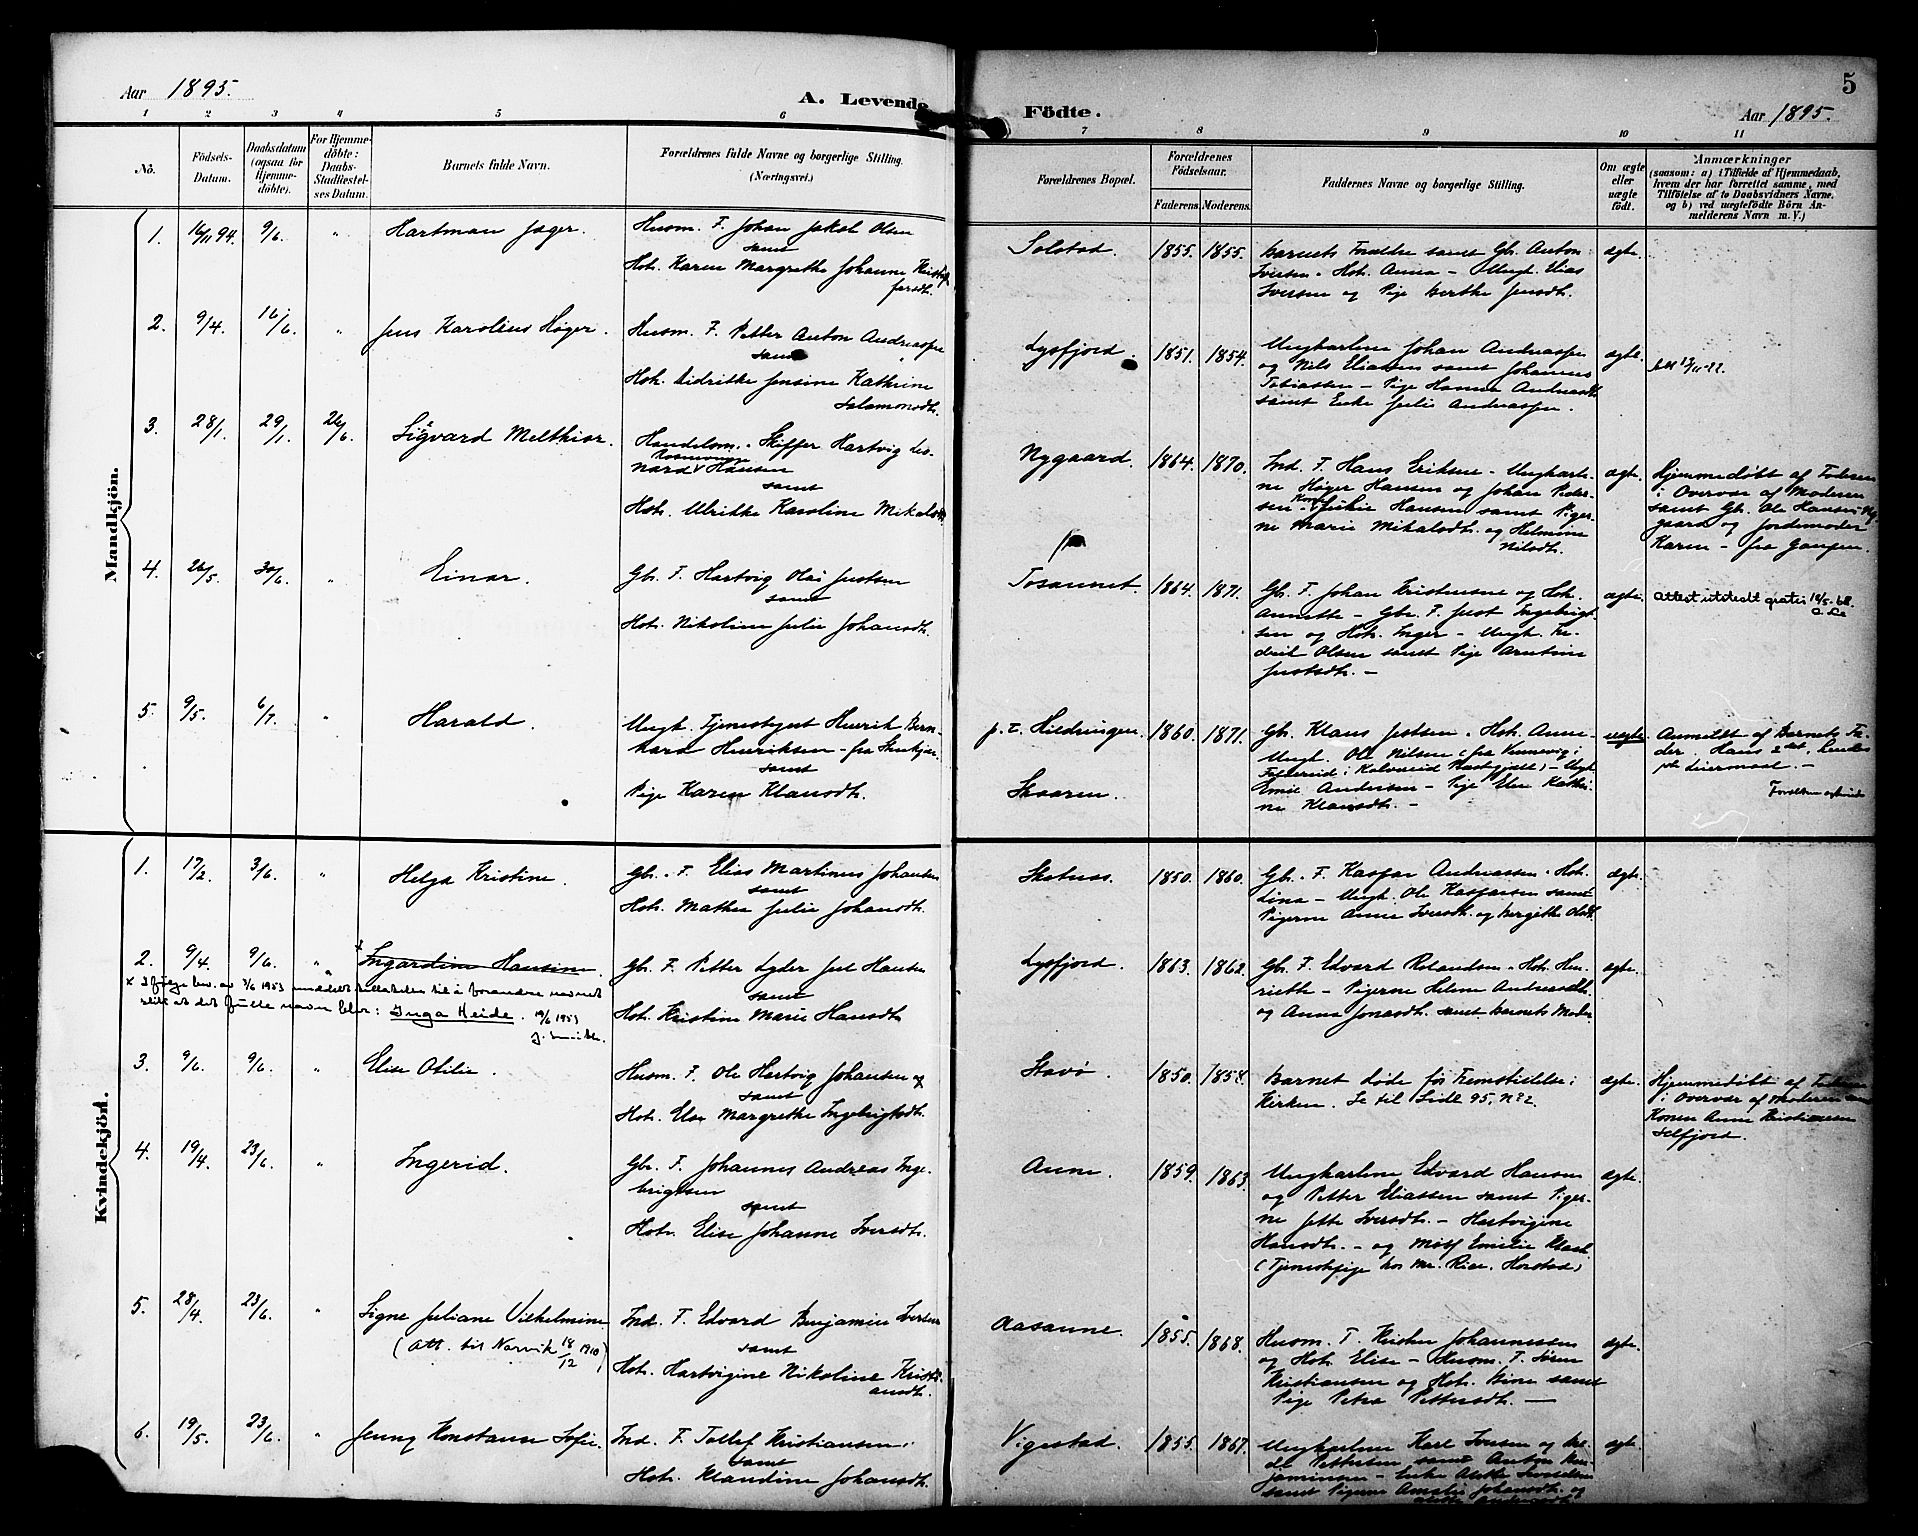 Aar 1895.
A. Levende
Födte.
5
Aar 1895.
1 2 3 4 5 6 7 8 9 10 11
No.
Födsels-
Datum.
Daabsdatum
(ogsaa for
Hjemme-
döbte).
For Hjemme-
döbte:
Daabs-
Stadfæstel-
ses Datum.
Barnets fulde Navn.
Forældrenes fulde Navne og borgerlige Stilling.
(Næringsvei.)
Forældrenes Bopæl.
Forældrenes
Födselsaar.
Faderens. Moderens.
Faddernes Navne og borgerlige Stilling.
Om ægte
eller
uægte
födt.
Anmærkninger
(saasom: a) i Tilfælde af Hjemmedaab,
hvem der har forrettet samme, med
Tilföielse af to Daabsvidners Navne,
og b) ved uægtefödte Börn An-
melderens Navn m. V.)
Mandkjön.
1. 16/11 94. 9/6. " Hartman Jæger.
Husm. F. Johan Jakob Olsen
samt
Hst. Karen Margrethe Johanne Kristof
fersdt.
Solstad. 1855. 1855.
Barnets Forældre samt Gbr. Anton
Iversen. Hst. Anna - Ungk. Elias
Iversen og Pige Berthe Jensdt.
ægte.
2. 9/4. 16/6. " Jens Karolius Høger.
Husm. F. Petter Anton Andreassen
samt
Hst. Didrikke Jensine Kathrine
Salamonsdt.
Lysfjord. 1851. 1854.
Ungkarlene Johan Andreassen
og Nils Eliassen samt Johannes
Tobiassen - Pige Hanna Andreasdt
samt Enke Julie Andreassen.
ægte.
3. 28/1. 29/1. 26/6. Sigvard Melkior.
Handelsm. Skipper Hartvig Leo-
nard Hansen
samt
Hst. Ulrikke Karoline Mikalsdt.
Nygaard. 1864. 1870.
Ind. F. Hans Eriksen - Ungkarle-
ne Høger Hansen og Johan Peder-
sen - Kone Julie Hansen samt Piger-
ne Marie Mikalsdt. og Helmine
Nilsdt.
ægte.
Hjemmedøbt af Faderen
i Overvær af Moderen
samt Gb. Ole Hansen Ny-
gaard og Jordemoder
Karen - fra Gangen.
4. 26/5. 30/6. " Einar.
Gbr. F. Hartvig Olai Justsen
samt
Hst. Nikoline Julie Johansdt.
Tosaunet. 1864. 1871.
Gbr. F. Johan Kristensen og Hst.
Annette - Gbr. F. Just Ingebrigt-
sen og Hst. Inger - Ungk. Fre-
drik Olsen samt Pige Arntine
Justsdt. -
ægte.
Attest utstedt gratis
5. 9/5. 6/7. " Harald.
Ungk. Tjenestegut Henrik Bern-
hard Henriksen - fra Stenkjær
samt
Pige Karen Klausdt.
p.t. Hildringen. 1860. 1871.
Skaaren.
Gbr. Klaus Jostsen. Hst. Anne -
Ungk. Ole Nilsen
Emil Andersen - Pige Else Kathri-
ne Klausdt. -
uægte
Anmeldt af Barnets Fa-
der. Hans 2det, hendes
1ste Leiermaal. -
Kvindekjön.
1. 17/2. 3/6. " Helga Kristine.
Gbr. F. Elias Martinus Johansen
samt
Hst. Mathea Julie Johansdt.
Skotnes. 1850. 1860.
Gbr. F. Kaspar Andreassen. Hst.
Lina - Ungk. Ole Kaspersen samt
Pigerne Anne Iversdt. og Bergitte Olsdt.
ægte.
2. 9/4. 9/6. " x Ingardine Hansine.
x Ifølge bev. av 3/6 1953 meddelt tillatelse til å forandre navnet
slik at det fulle navn blir: Inga Heide. 19/6 1953
Gbr. F. Petter Lyder Juel Hansen
samt
Hst. Kristine Marie Hansdt.
Lysfjord. 1863. 1862.
Gbr. F. Edvard Rolandsen. Hst. Hen-
riette - Pigerne Helene Andreasdt.
og Anna Jonasdt. samt Barnets Moder
ægte.
3. 9/6. 9/6. " Elise Otilie.
Husm. F. Ole Hartvig Johansen og
samt
Hst. Else Margrethe Ingebrigtsdt.
Stavø. 1850. 1858.
Barnet døde før Fremstillelse i
Kirken. Se til Side 95, No 2.
ægte.
Hjemmedøbt af Faderen
i Overvær af Moderen samt
Konen Anne Kristiansen
Selfjord.
4. 19/4. 23/6. " Ingerid.
Gbr. F. Johannes Andreas Inge-
brigtsen
samt
Hst. Elise Johanne Iversdt.
Aune. 1859. 1863.
Ungkarlene Edvard Hansen
og Petter Eliassen samt Piger-
ne Jette Iversdt. - Hartvigine
Hansdt. - og Emilie
(Tjenestepige hos Horstad)
ægte.
5. 28/4. 23/6. " Signe Juliane Vilhelmine
(Att. til Narvik 18/12 1910)
Ind. F. Edvard Benjamin Iversen
samt
Hst. Hartvigine Nikoline Kristi-
ansdt.
Aasaune. 1855. 1868.
Husm. F. Kristen Johannessen
og Hst. Elise - Husm. F. Søren
Kristiansen og Hst. samt
Pige Petra Pettersdt. -
ægte.
6. 19/5. 23/6. " Jenny Konstanse Sofie.
Ind. F. Tollef Kristiansen
samt
Hst. Klaudine Johansdt.
Vigestad. 1855. 1867.
Ungkarlene Karl Iversen og
Pettersen samt Anton Ben-
jaminsen - Enke
samt Pigerne Amalie Johansdt. og
ægte.